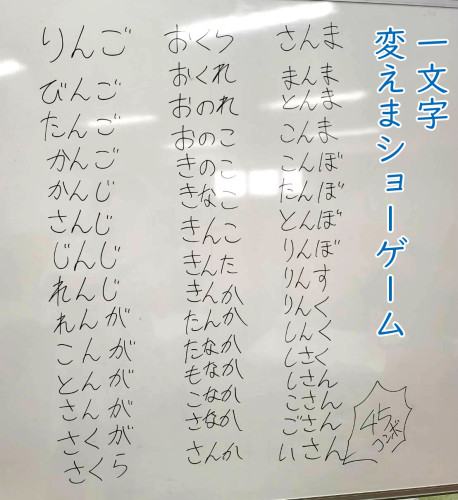 一文字
変えまショーゲーム
りんご
びんご
たんご
かんご
かんじ
さんじ
じんじ
れんじ
れんが
こんが
とんが
さんが
さくが
さくら
おくら
おくれ
おのれ
おのこ
きのこ
きなこ
きんこ
きんた
きんか
たんか
たなか
もなか
こなか
さなか
さんか
さんま
まんま
とんま
こんま
こんぼ
たんぼ
とんぼ
りんぼ
りんす
りんく
しんく
しさく
しさん
こさん
ごさん
いさん
45
コンボ